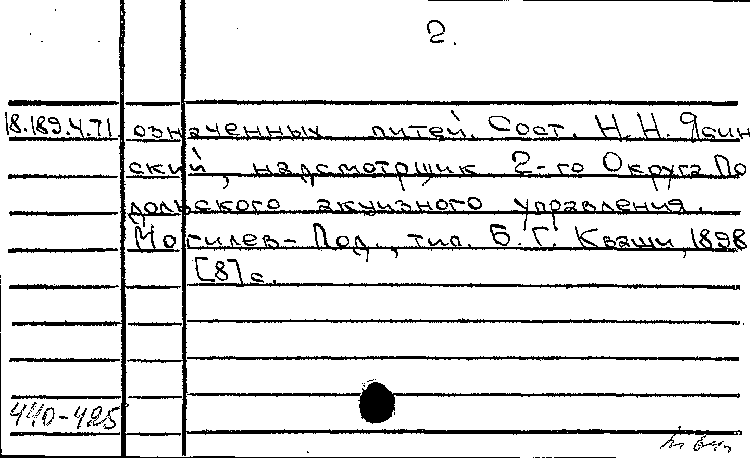 2.
18.189.4.71 означенных питей. Сост. Н.Н. Ясин
ский, надсмотрщик 2-го Округа По
дольского акцизного управления.
Могилев-Под., тип. Б.Г. Кваши, 1898
[8] с.
440-425